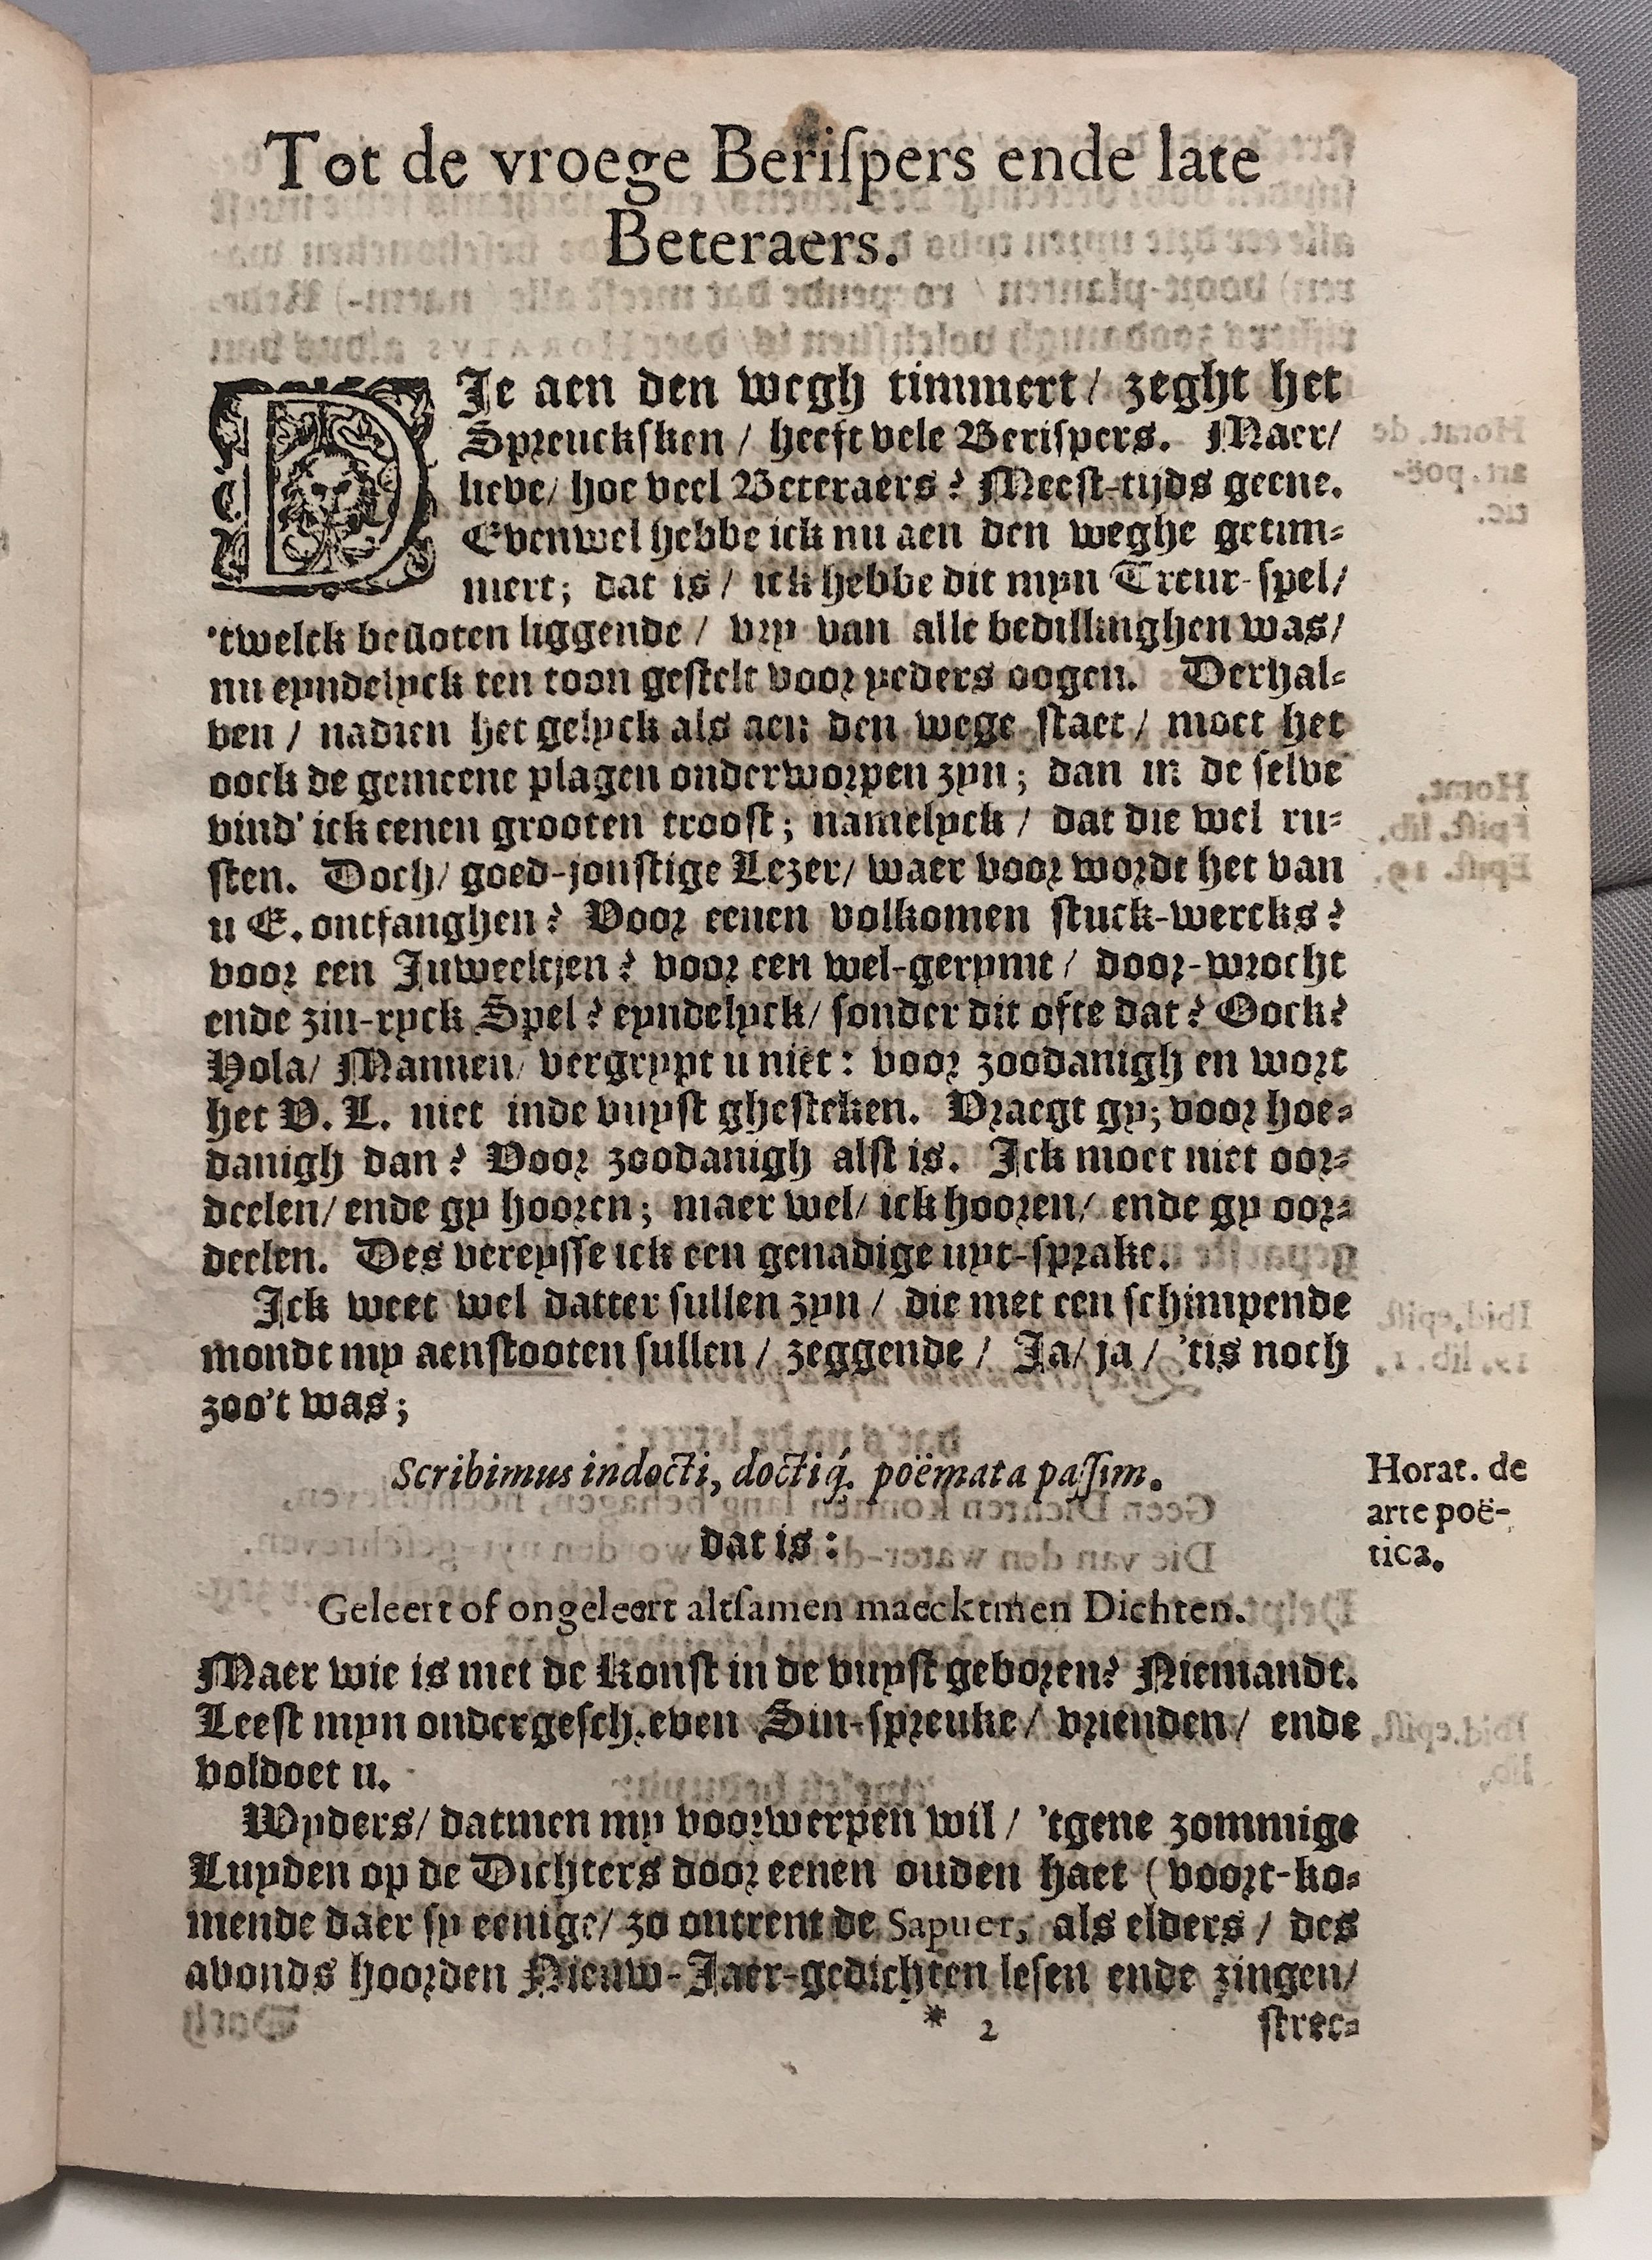 Tot de vroege Beriſpers ende late
Beteraers.
DJe aen den wegh timmert / zeght het
Spreuckſken / heeft vele Beriſpers. Maer /
lieve / hoe veel Beteraers? Meeſt-tijds geene.
Evenwel hebbe ick nu aen den weghe getim-
mert; dat is / ick hebbe dit myn Treur-ſpel /
'twelck beſloten liggende / vry van alle bedillinghen was /
nu eyndelyck ten toon geſtelt voor yeders oogen. Derhal-
ven / nadien het gelyck als aen den wege ſtaet / moet het
oock de gemeene plagen onderworpen zyn; dan in de ſelve
vind' ick eenen grooten trooſt; namelyck / dat die wel ru-
ſten. Doch / goed-jonſtige Lezer / waer voor wordt het van
u E. ontfanghen? Voor eenen volkomen ſtuck-wercks?
voor een Juweeltjen? voor een wel-gerymt / door-wrocht
ende zin-ryck Spel? eyndelyck / ſonder dit ofte dat? Oock?
Hola / Mannen / vergrypt u niet: voor zoodanigh en wort
het V. L. niet inde vuyſt gheſteken. Vraegt gy; voor hoe-
danigh dan? Voor zoodanigh alſt is. Ick moet niet oor-
deelen / ende gy hooren; maer wel / ick hooren / ende gy oor-
deelen. Des vereyſſe ick een genadige uyt-ſprake.
Ick weet wel datter ſullen zyn / die met een ſchimpende
mondt my aenſtooten ſullen / zeggende / Ja / ja / 'tis noch
zoo't was;
Scribimus indocti, doctiq́. poëmata paſſim.
Horat. de
arte poë-
tica.
dat is:
Geleert of ongeleert altſamen maecktmen Dichten.
Maer wie is met de Konſt in de vuyſt geboren? Niemandt.
Leeſt myn ondergeſch.even Sin-ſpreuke / vrienden / ende
voldoet u.
Wyders / datmen my voorwerpen wil / 'tgene zommige
Luyden op de Dichters door eenen ouden haet (voort-ko-
mende daer ſy eenige / zo ontrent de Sapuer, als elders / des
avonds hoorden Nieuw-Jaer-gedichten leſen ende zingen /
* 2
ſtrec-